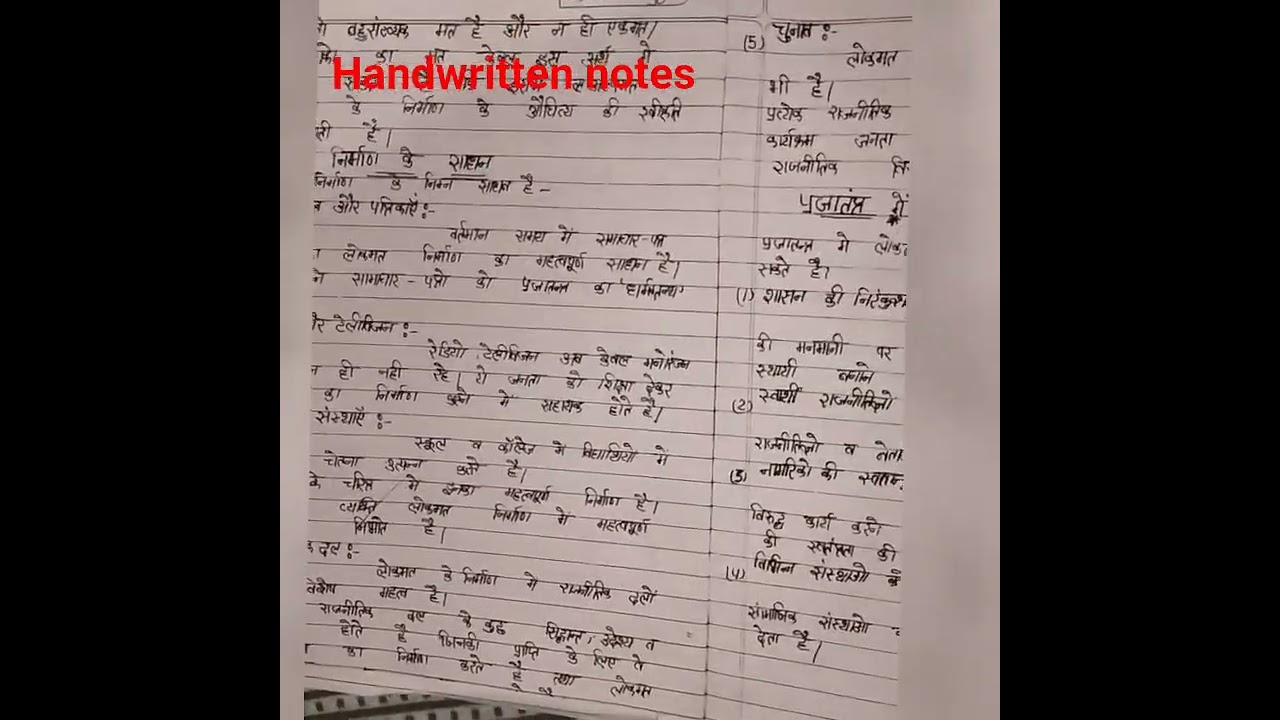 Handwritten notes
बहुसंख्यक मत है और न ही एकमत।
का मत केवल इस अर्थ में
के निर्माण के औचित्य की स्वीकृति
है।
निर्माण के साधन
निर्माण के निम्न साधन है -
व और पत्रिकाएं :-
वर्तमान समय में समाचार-पत्र
लोकमत निर्माण का महत्वपूर्ण साधन है।
सामाचार - पत्रो को प्रजातन्त्र का
टेलीविजन :-
रेडियो, टेलीविजन अब केवल मनोरंजन
न ही नही रहे। ये जनता को शिक्षा देकर
का निर्माण करने में सहायक होते है।
संस्थाएँ :-
स्कूल व कॉलेज में विद्यार्थियो में
चेतना उत्पन्न करते है।
के चरित्र में इनका महत्वपूर्ण निर्माण है।
व्यक्ति लोकमत निर्माण में महत्वपूर्ण
निभाते है।
दल :-
लोकमत के निर्माण में राजनीतिक दलों
महत्व है।
राजनीतिक दल के कुछ सिद्धान्त, उद्देश्य व
होते है जिनकी प्राप्ति के लिए वे
का निर्माण करते है तथा लोकमत
(5) चुनाव :-
लोकमत
भी है।
प्रत्येक राजनीतिक
कार्यक्रम जनता
राजनीतिक
प्रजातंत्र में
प्रजातन्त्र में
सकते है।
(1) शासन की
की मनमानी पर
स्थायी बनाने
(2) स्वार्थी राजनीतिज्ञो
राजनीतिज्ञो व नेता
(3) नागरिको की
विरुद्ध कार्य करने
की स्वतंत्रता की
(4) विभिन्न संस्थाओ के
सामाजिक संस्थाओ
देता है।